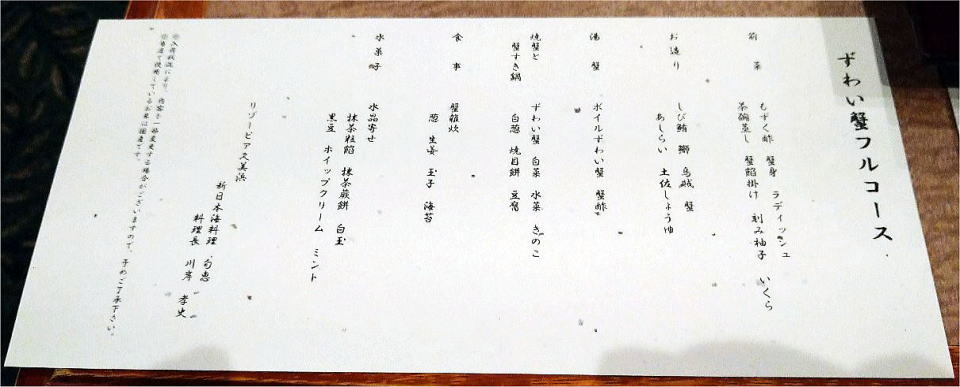 ずわい蟹フルコース
前菜
もずく酢 蟹身 ラディッシュ
茶碗蒸し 蟹餡掛け 刻み柚子 いくら
お造り
しび鮪 鰤 烏賊 蟹
あしらい 土佐しょうゆ
湯蟹
ボイルずわい蟹 蟹酢
焼蟹と
蟹すき鍋
ずわい蟹 白菜 水菜 きのこ
白葱 焼目餅 豆腐
食事
蟹雑炊
葱 生姜 玉子 海苔
水菓子
水晶寄せ
抹茶粒餡 抹茶蕨餅 白玉
黒豆 ホイップクリーム ミント
リゾーピア久美浜
新日本海料理 旬恵
料理長 川岸 孝史
※入荷状況により、内容を一部変更する場合がございますので、予めご了承下さい。
※当店で使用しているお米は国産です。